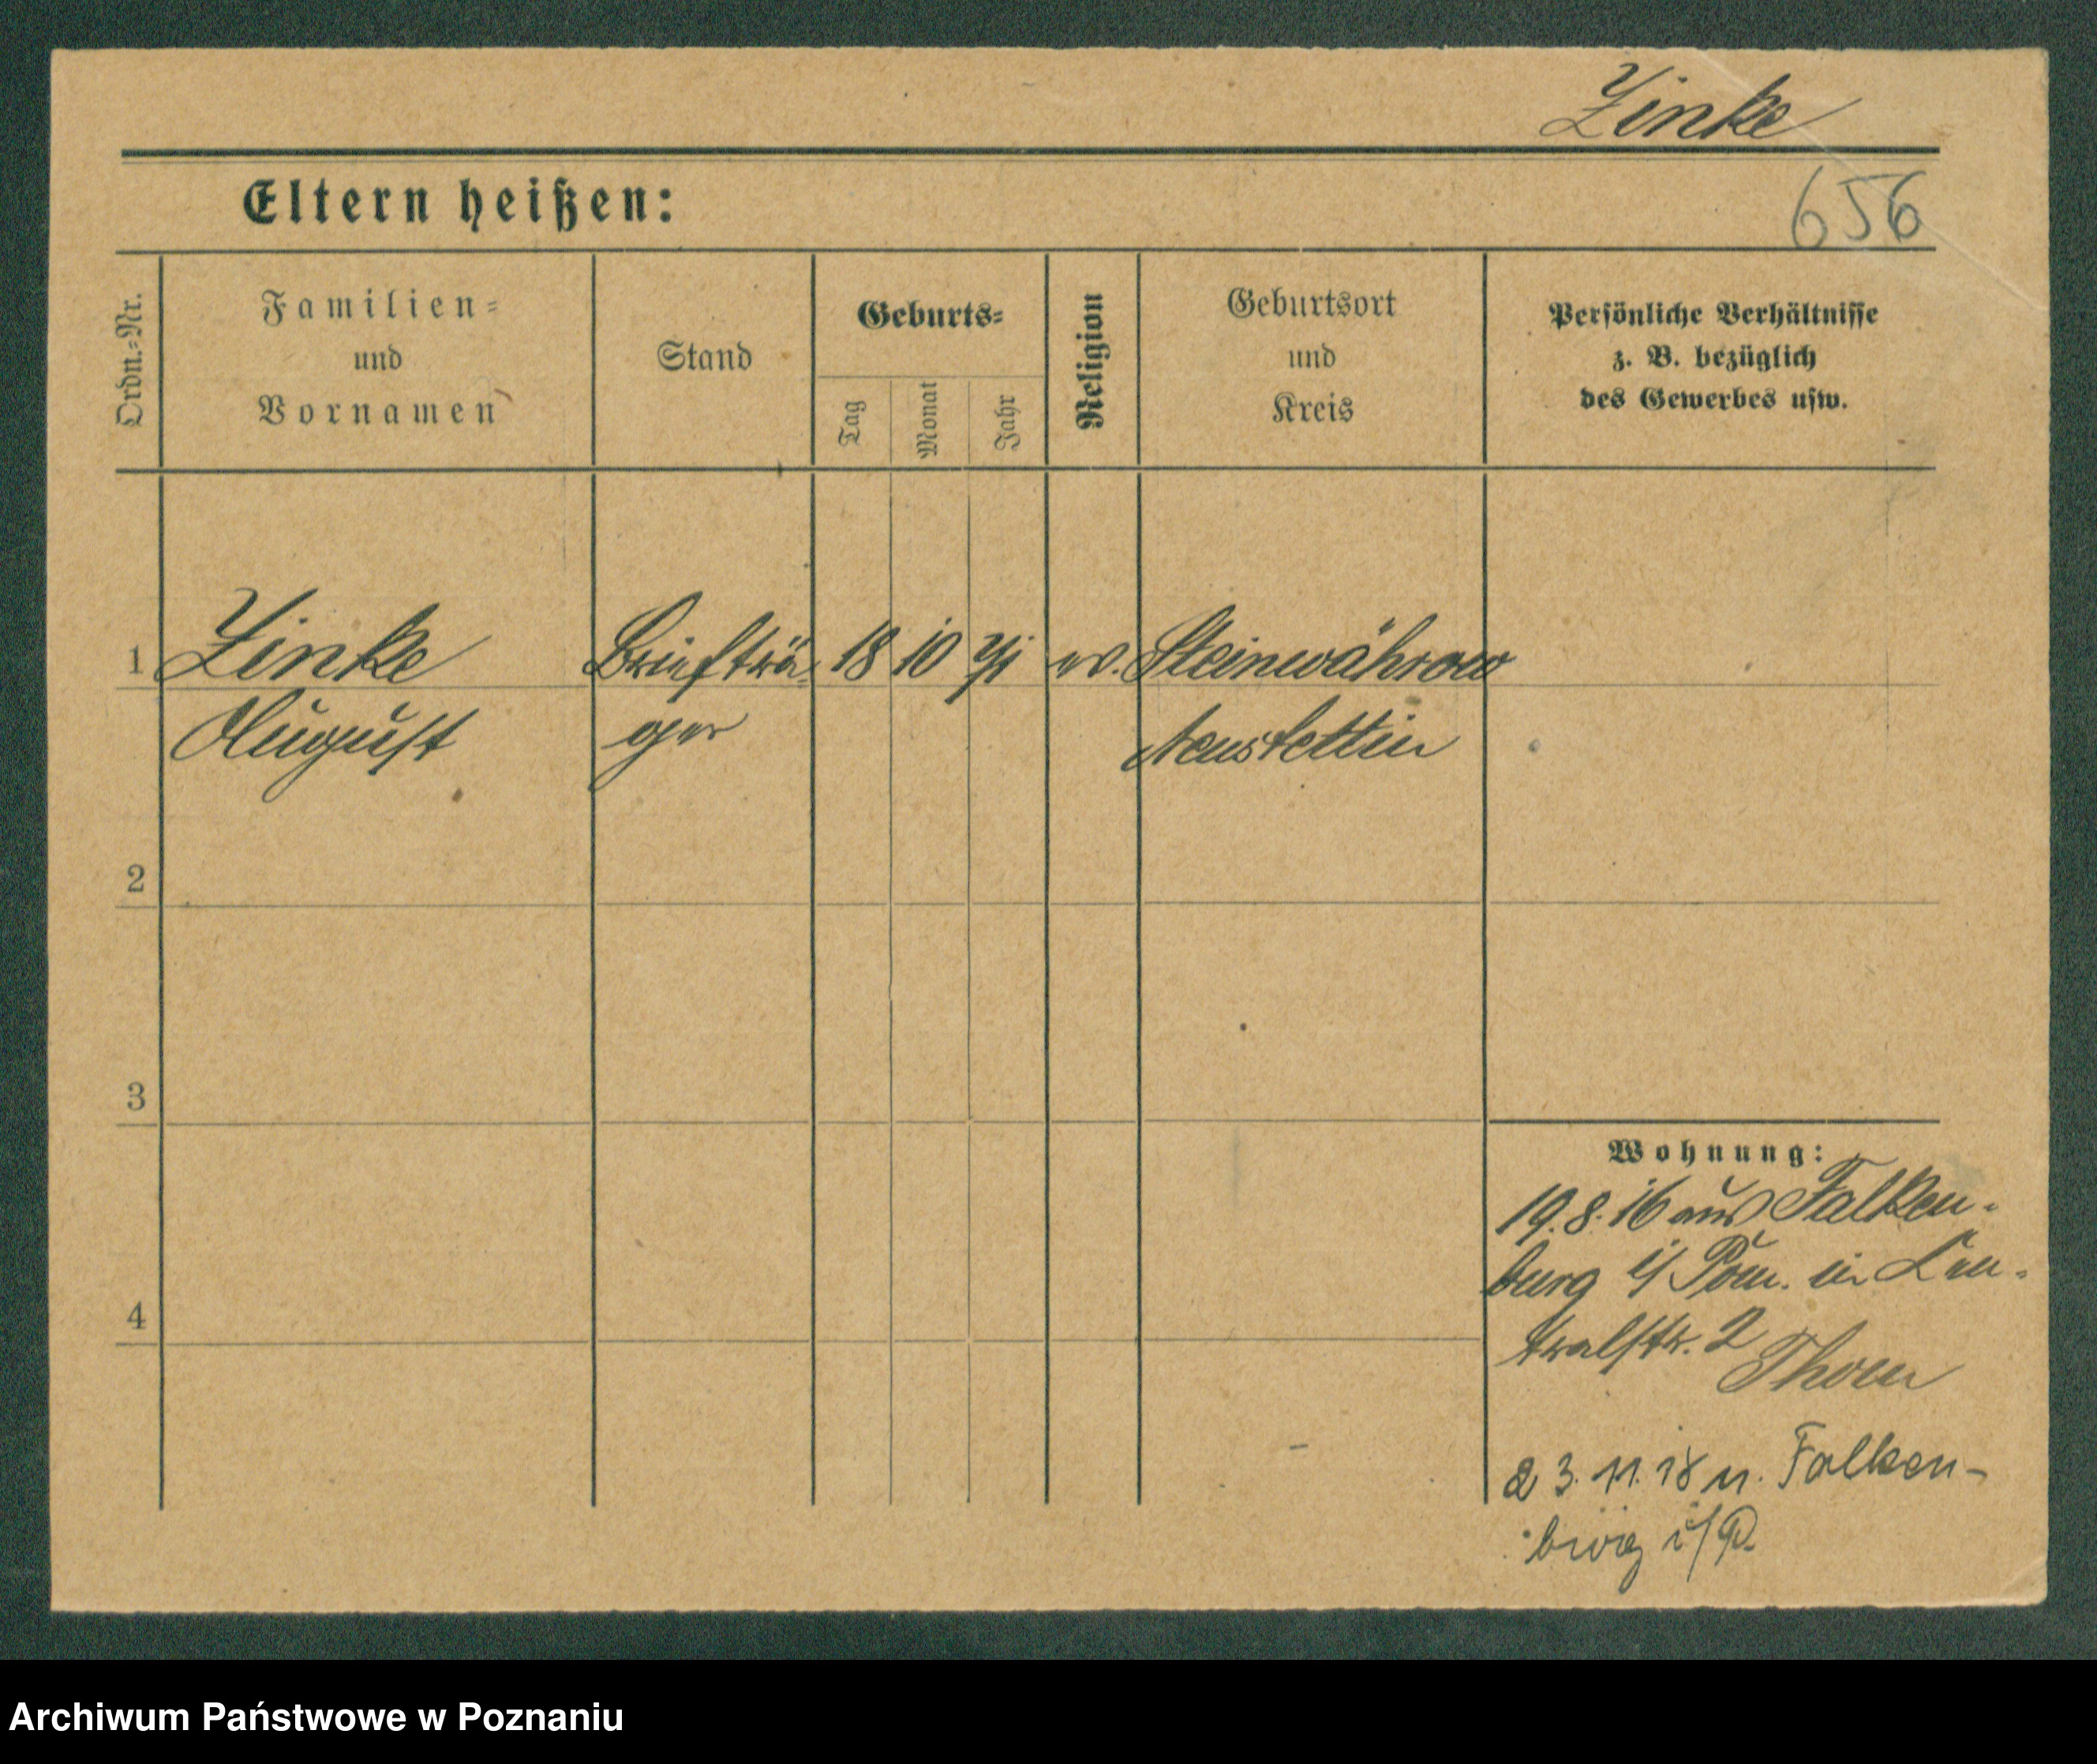 Zinke
Eltern heißen:
656
Ordn.-Nr.
Familien-
und
Vornamen
Stand
Geburts-
Tag
Monat
Jahr
Religion
Geburtsort
und
Kreis
Persönliche Verhältnisse
z. B. bezüglich
des Gewerbes usw.
1 Zinke Briefträ- 18 10 71 ev. Steinwährow
August ger Neustettin
2
3
4
Wohnung:
19.8.16 aus Falken-
burg i/ Pom. in
tralstr. 2
Thorn
23.11.18 n. Falken-
burg i/P.
Archiwum Państwowe w Poznaniu